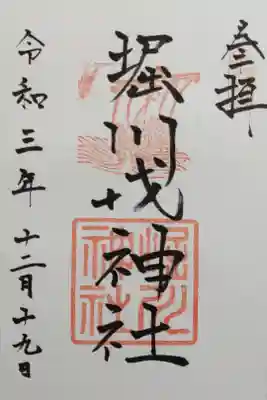 奉拝
堀川戎神社
令和三年十二月十九日
堀川
神社